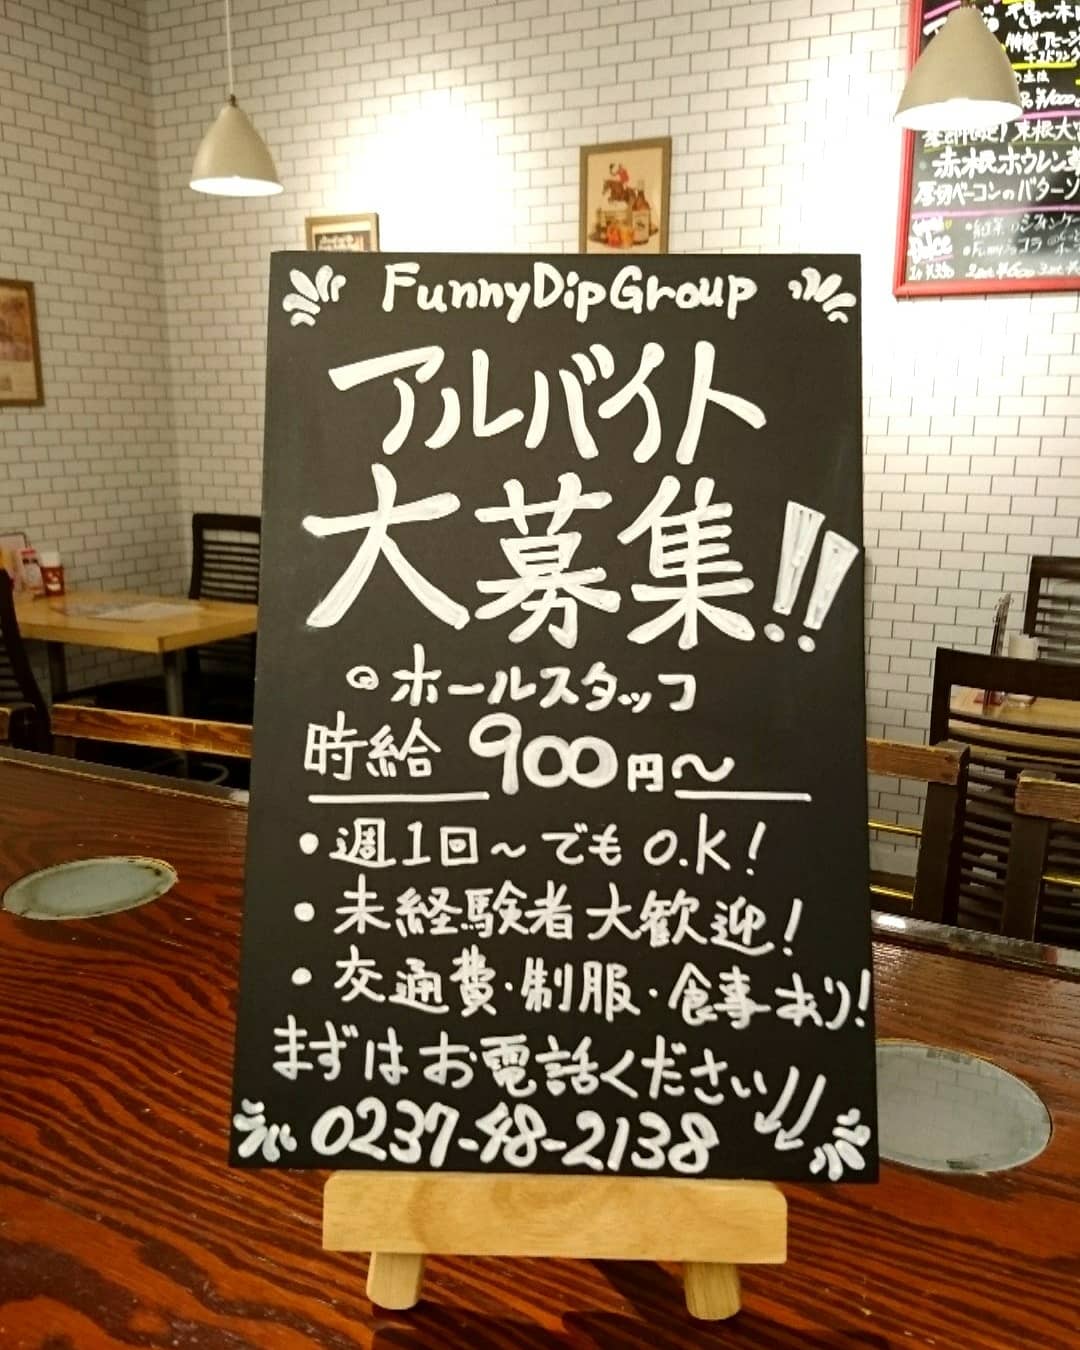 FunnyDipGroup
アルバイト
大募集!!
ホールスタッフ
時給 900円〜
・週1回〜でもo.k!
・未経験者大歓迎!
・交通費・制服・食事あり!
まずはお電話ください
0237-48-2138
赤根ホウレン草
厚切ベーコンのバターソ